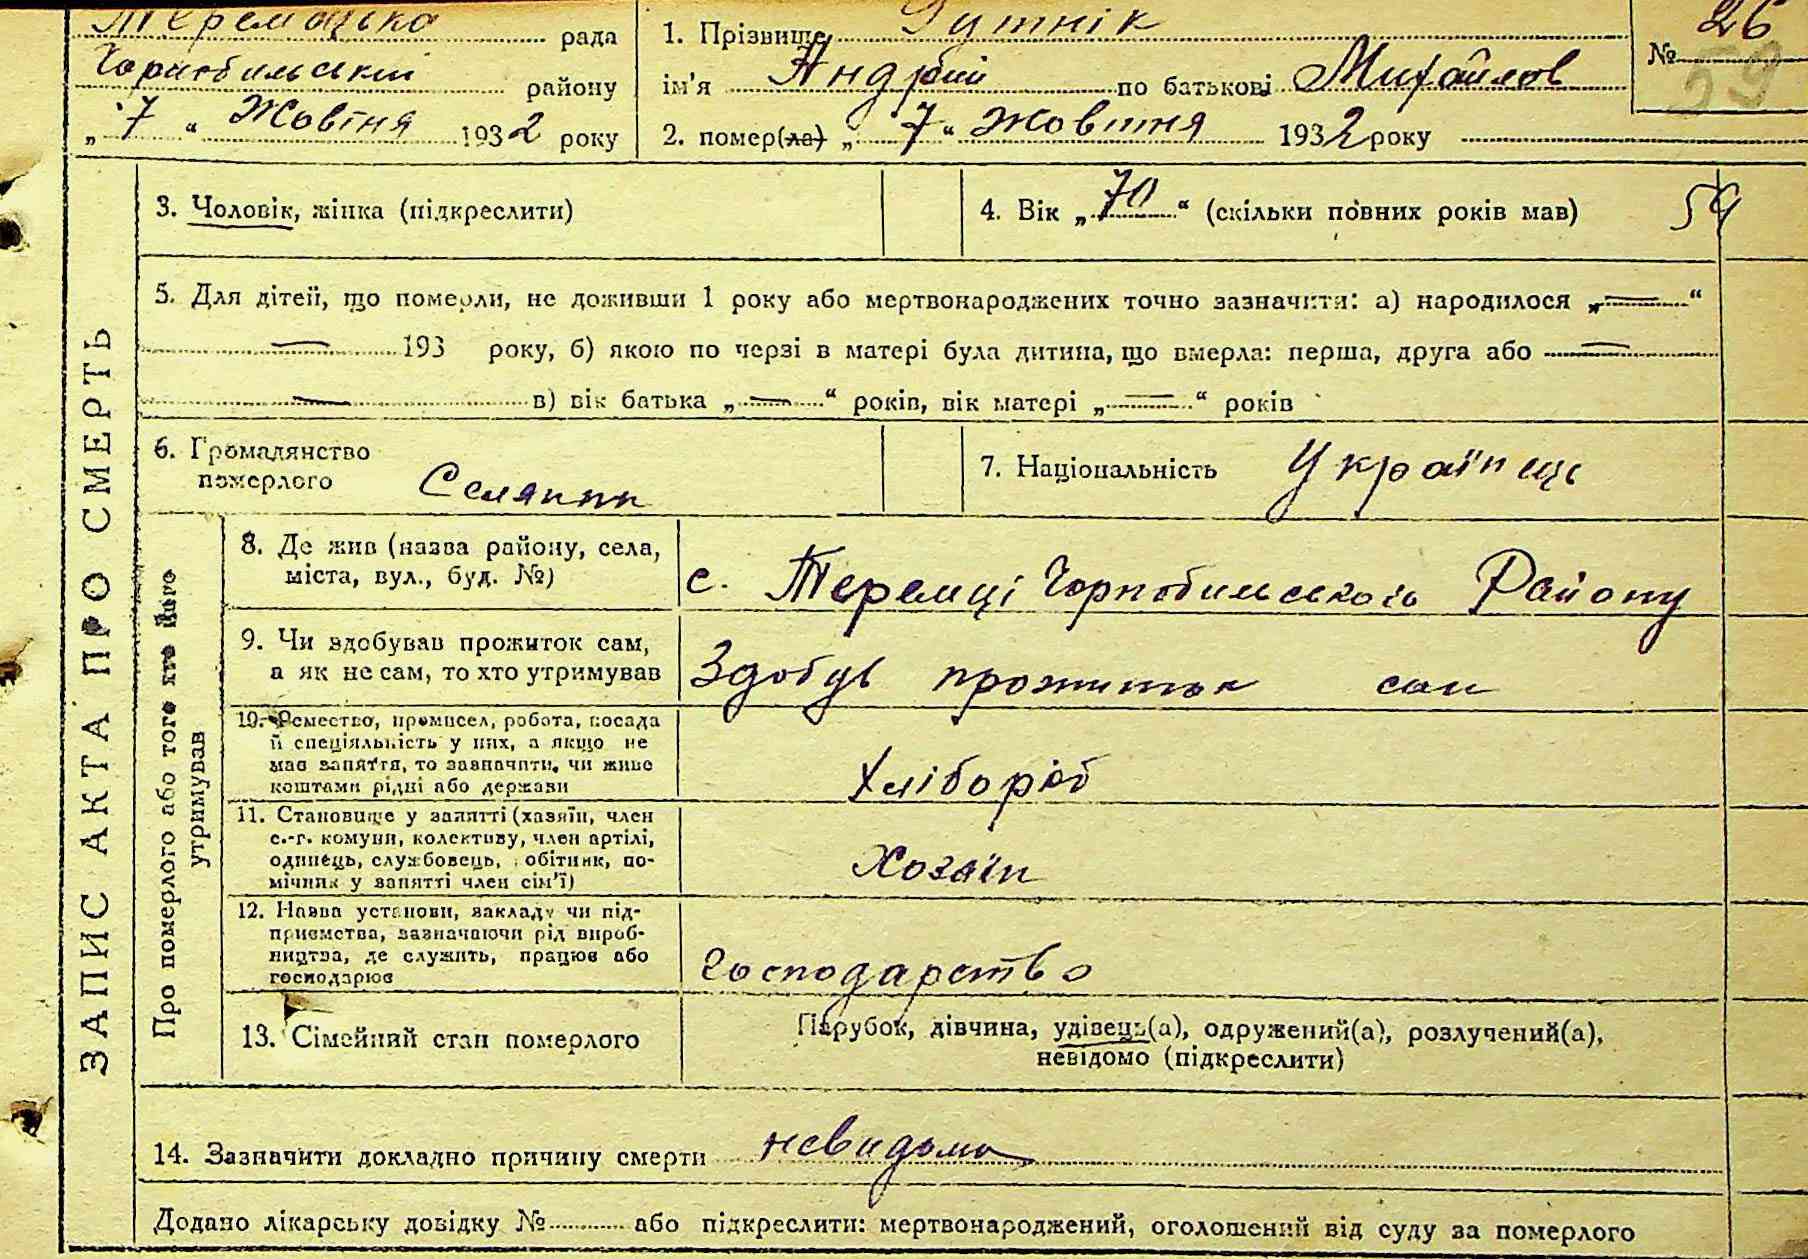 Теремцська рада
Чорнобильській району
„ 7 “ Жовтня 1932 року
1. Прізвище Гутнік
ім'я Андрій по батькові Михайлов
2. помер(ла) „ 7 “ Жовтня 1932 року
№ 26
59
3. Чоловік, жінка (підкреслити)
4. Вік „ 70 “ (скільки повних років мав)
59
5. Для дітей, що померли, не доживши 1 року або мертвонароджених точно зазначити: а) народилося „ — “
— 193 року, б) якою по черзі в матері була дитина, що вмерла: перша, друга або —
— в) вік батька „ — “ років, вік матері „ — “ років
6. Громадянство
померлого Селянин
7. Національність Українець
ЗАПИС АКТА ПРО СМЕРТЬ
Про померлого або того хто його
утримував
8. Де жив (назва району, села,
міста, вул., буд. №)
с. Теремці Чорнобильського Району
9. Чи здобував прожиток сам,
а як не сам, то хто утримував
Здобув прожиток сам
10. Ремество, промисел, робота, посада
й спеціяльність у них, а якщо не
має заняття, то зазначити, чи живе
коштами рідні або держави
Хлібороб
11. Становище у занятті (хазяїн, член
с.-г. комуни, колективу, член артілі,
одинець, службовець, обітник, по-
мічник у занятті член сім'ї)
Хозаїн
12. Назва установи, закладу чи під-
приємства, зазначаючи рід вироб-
ництва, де служить, працює або
господарює
Господарство
13. Сімейний стан померлого
Парубок, дівчина, удівець(а), одружений(а), розлучений(а),
невідомо (підкреслити)
14. Зазначити докладно причину смерти невидома
Додано лікарську довідку № або підкреслити: мертвонароджений, оголошений від суду за померлого